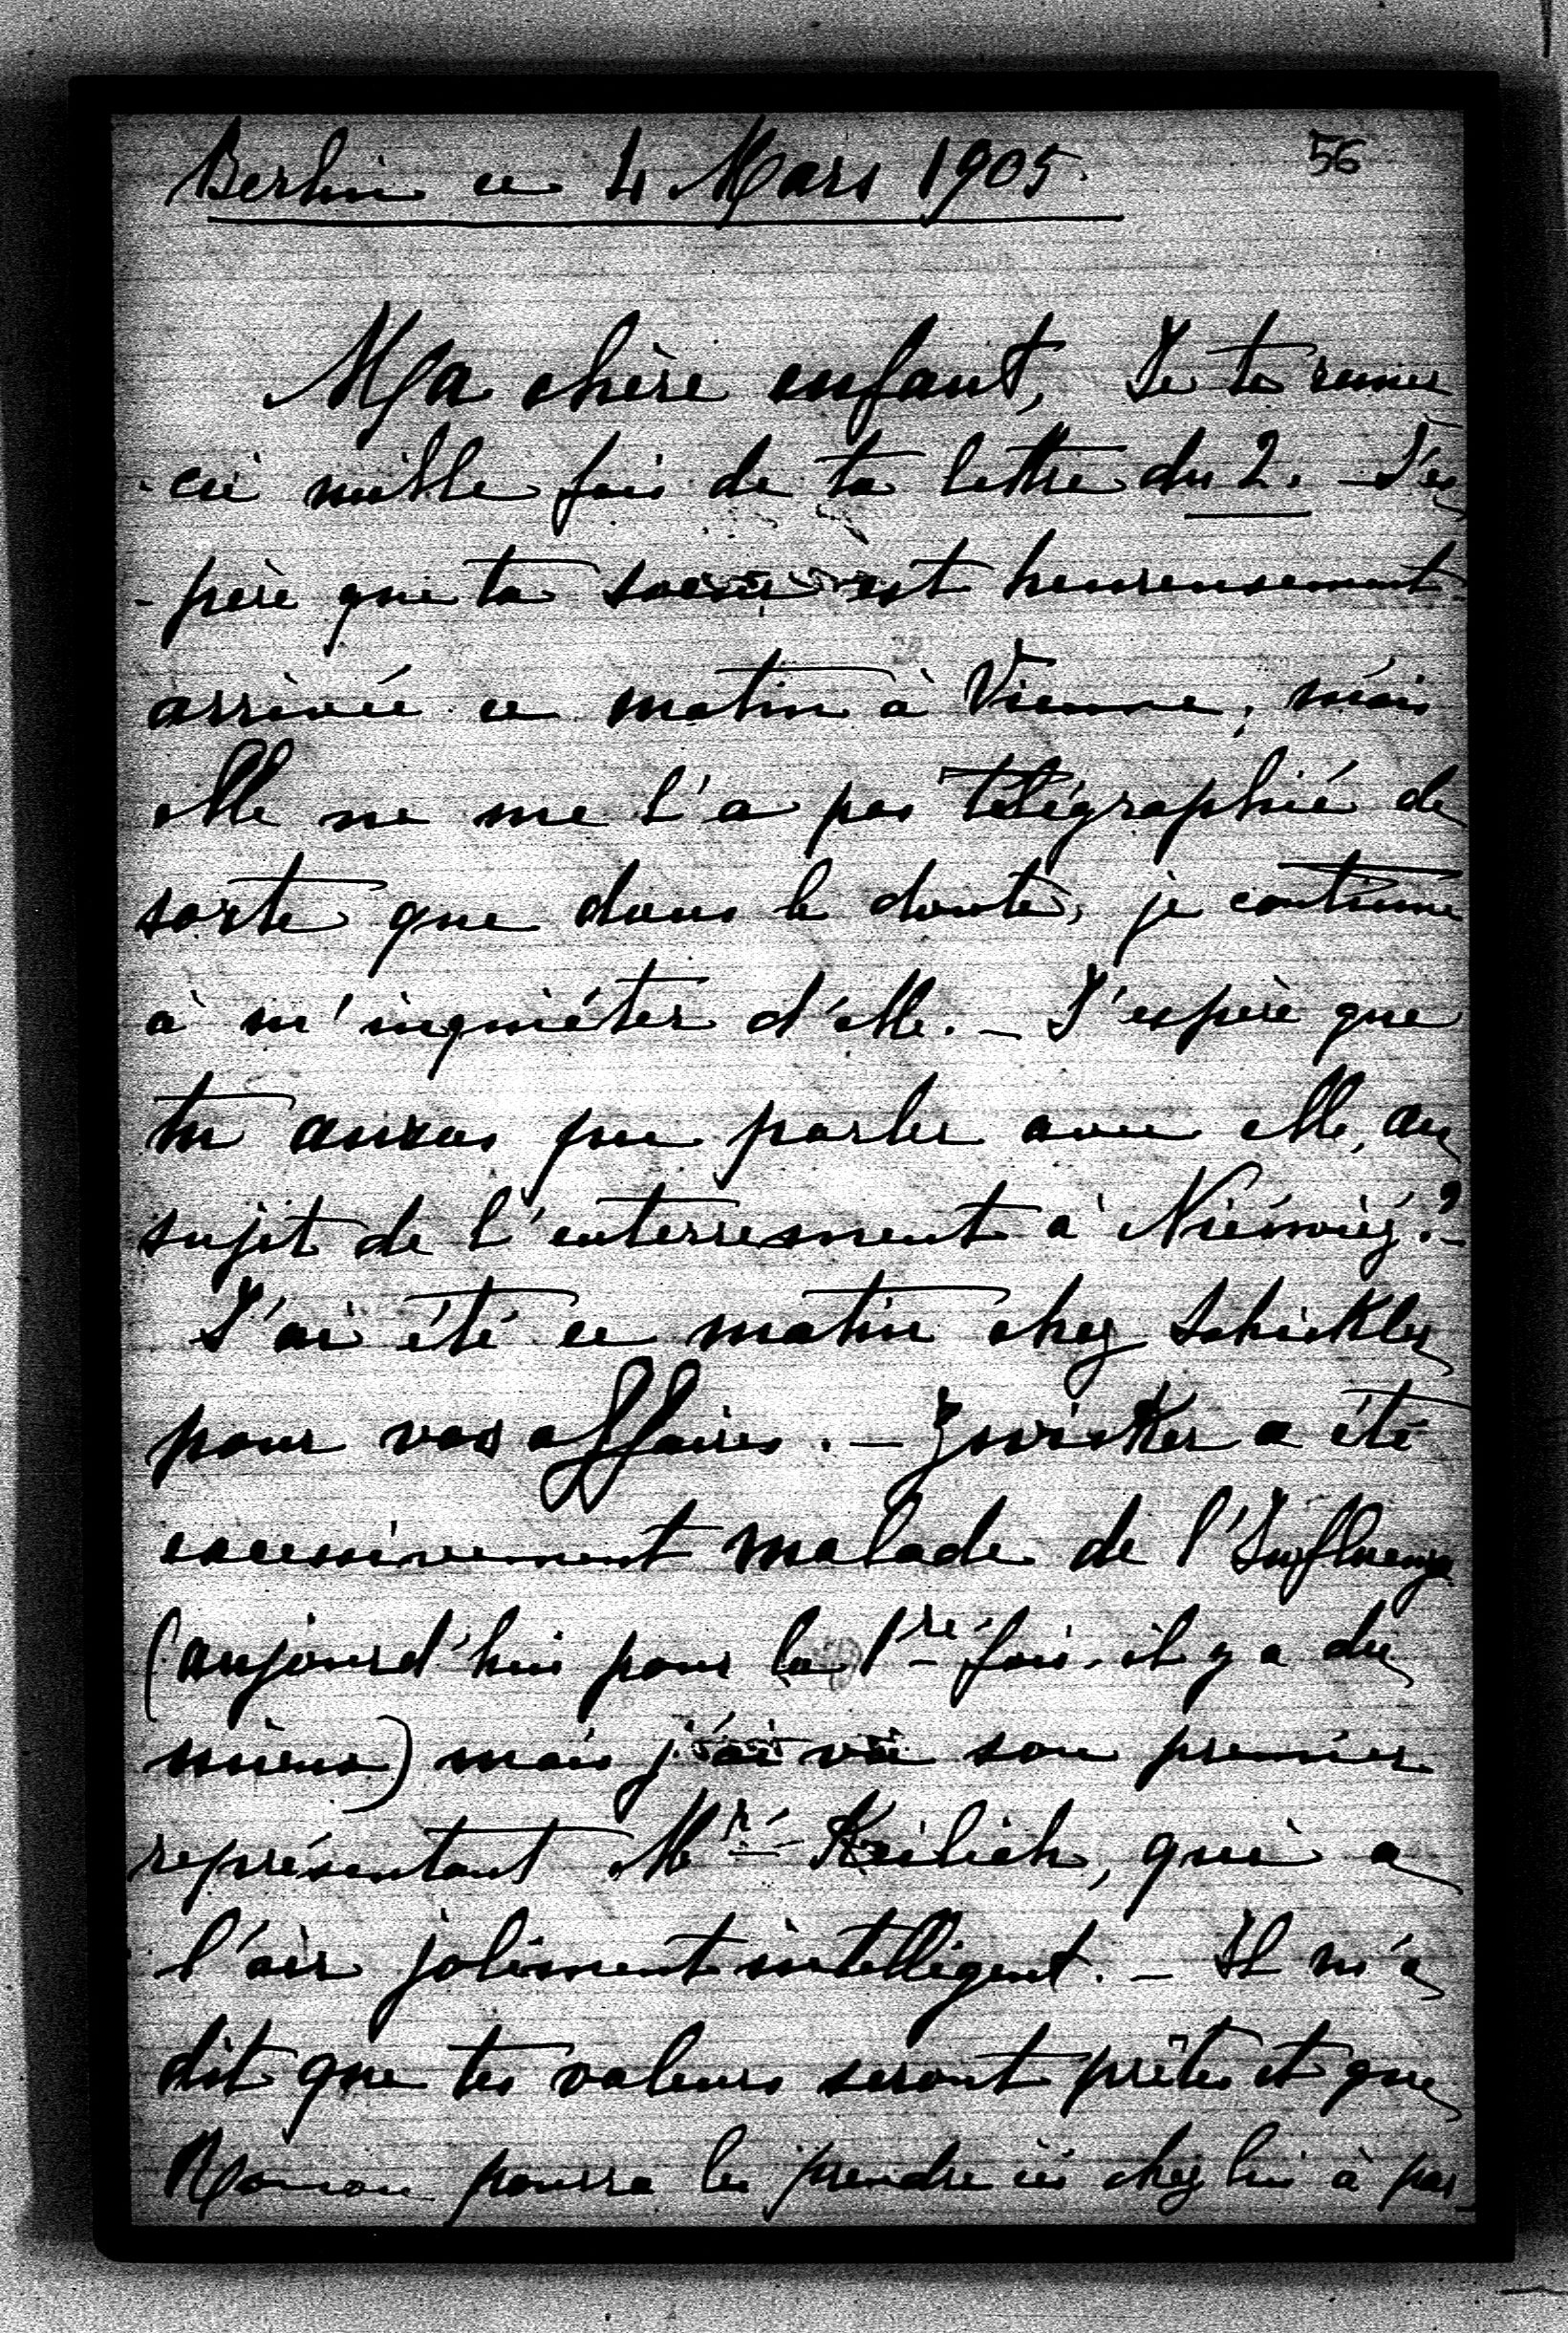 Berlin ce 4 Mars 1905.
56
Ma chère enfant, Je te remer
-cie mille fois de ta lettre du 2. – J'es
-père que ta soeur est heureusement
arrivée ce matin à Vienne, mais
elle ne me l'a pas télégraphié de
sorte que dans le doute, je continue
à m'inquiéter d'elle. – J'espère que
tu auras pu parler avec elle, au
sujet de l'enterrement à Niéświéz? –
J'ai été ce matin chez Schickler
pour vos affaires. – Zwicker a été
excessivement malade de l'Influenza
(aujourd'hui pour la 1re fois il y a du
mieux) mais j'ai vu son premier
représentant Mr Keilich, qui a
l'air joliment intelligent. – Il m'a
dit que tes valeurs seront prêtes et que
pourra les prendre ici chez lui à par-